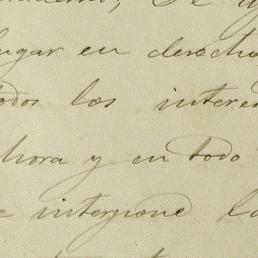 lugar en derecho
todos los intere
hora y en todo
e interpone la